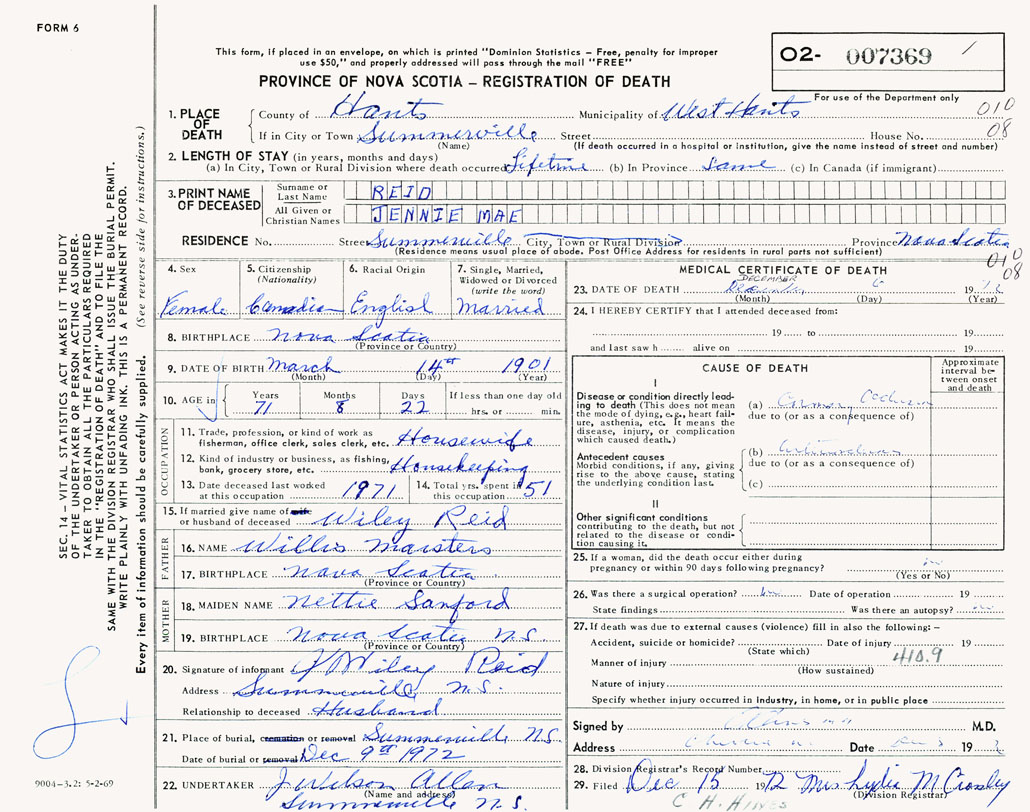 FORM 6
This form, if placed in an envelope, on which is printed "Dominion Statistics – Free, penalty for improper
use $50," and properly addressed will pass through the mail "FREE"
PROVINCE OF NOVA SCOTIA – REGISTRATION OF DEATH
O2- 007369 /
For use of the Department only
1. PLACE OF DEATH
County of Hants Municipality of West Hants 010
If in City or Town Summerville Street House No. 08
(Name) (If death occurred in a hospital or institution, give the name instead of street and number)
2. LENGTH OF STAY (in years, months and days)
(a) In City, Town or Rural Division where death occurred Lifetime (b) In Province Same (c) In Canada (if immigrant)
3. PRINT NAME OF DECEASED
Surname or Last Name REID
All Given or Christian Names JENNIE MAE
RESIDENCE No. Street Summerville City, Town or Rural Division Province Nova Scotia
(Residence means usual place of abode. Post Office Address for residents in rural parts not sufficient)
010
08
4. Sex Female
5. Citizenship (Nationality) Canadian
6. Racial Origin English
7. Single, Married, Widowed or Divorced (write the word) Married
8. BIRTHPLACE Nova Scotia
(Province or Country)
9. DATE OF BIRTH March 14th 1901
(Month) (Day) (Year)
10. AGE in Years 71 Months 8 Days 22 If less than one day old hrs. or min.
OCCUPATION
11. Trade, profession, or kind of work as fisherman, office clerk, sales clerk, etc. Housewife
12. Kind of industry or business, as fishing, bank, grocery store, etc. Housekeeping
13. Date deceased last worked at this occupation 1971
14. Total yrs. spent in this occupation 51
15. If married give name of wife or husband of deceased Wiley Reid
FATHER
16. NAME Willis Maisters
17. BIRTHPLACE Nova Scotia
(Province or Country)
MOTHER
18. MAIDEN NAME Nettie Sanford
19. BIRTHPLACE Nova Scotia N.S.
(Province or Country)
20. Signature of informant Wiley Reid
Address Summerville N.S.
Relationship to deceased Husband
21. Place of burial, cremation or removal Summerville N.S.
Date of burial or removal Dec 9th 1972
22. UNDERTAKER J Wilson Allen
(Name and address)
Summerville N.S.
MEDICAL CERTIFICATE OF DEATH
DECEMBER
23. DATE OF DEATH December 6 1972
(Month) (Day) (Year)
24. I HEREBY CERTIFY that I attended deceased from:
19 to 19
and last saw h alive on 19
CAUSE OF DEATH
Approximate interval between onset and death
I
Disease or condition directly leading to death (This does not mean the mode of dying, e.g., heart failure, asthenia, etc. It means the disease, injury, or complication which caused death.)
(a) Coronary
due to (or as a consequence of)
Antecedent causes
Morbid conditions, if any, giving rise to the above cause, stating the underlying condition last.
(b)
due to (or as a consequence of)
(c)
II
Other significant conditions
contributing to the death, but not related to the disease or condition causing it.
25. If a woman, did the death occur either during
pregnancy or within 90 days following pregnancy? no
(Yes or No)
26. Was there a surgical operation? Date of operation 19
State findings Was there an autopsy? no
27. If death was due to external causes (violence) fill in also the following: –
Accident, suicide or homicide? Date of injury 19
(State which) 410.9
Manner of injury
(How sustained)
Nature of injury
Specify whether injury occurred in industry, in home, or in public place
Signed by M.D.
Address Date 19
28. Division Registrar's Record Number
29. Filed Dec 15 1972 Mrs Lydia M Crossley
(Division Registrar)
C H HINES
SEC. 14 – VITAL STATISTICS ACT MAKES IT THE DUTY
OF THE UNDERTAKER OR PERSON ACTING AS UNDER-
TAKER TO OBTAIN ALL THE PARTICULARS REQUIRED
IN THE "REGISTRATION OF DEATH" AND TO FILE THE
SAME WITH THE DIVISION REGISTRAR WHO SHALL ISSUE THE BURIAL PERMIT.
WRITE PLAINLY WITH UNFADING INK. THIS IS A PERMANENT RECORD.
Every item of information should be carefully supplied. (See reverse side for instructions.)
9004-3.2: 5-2-69